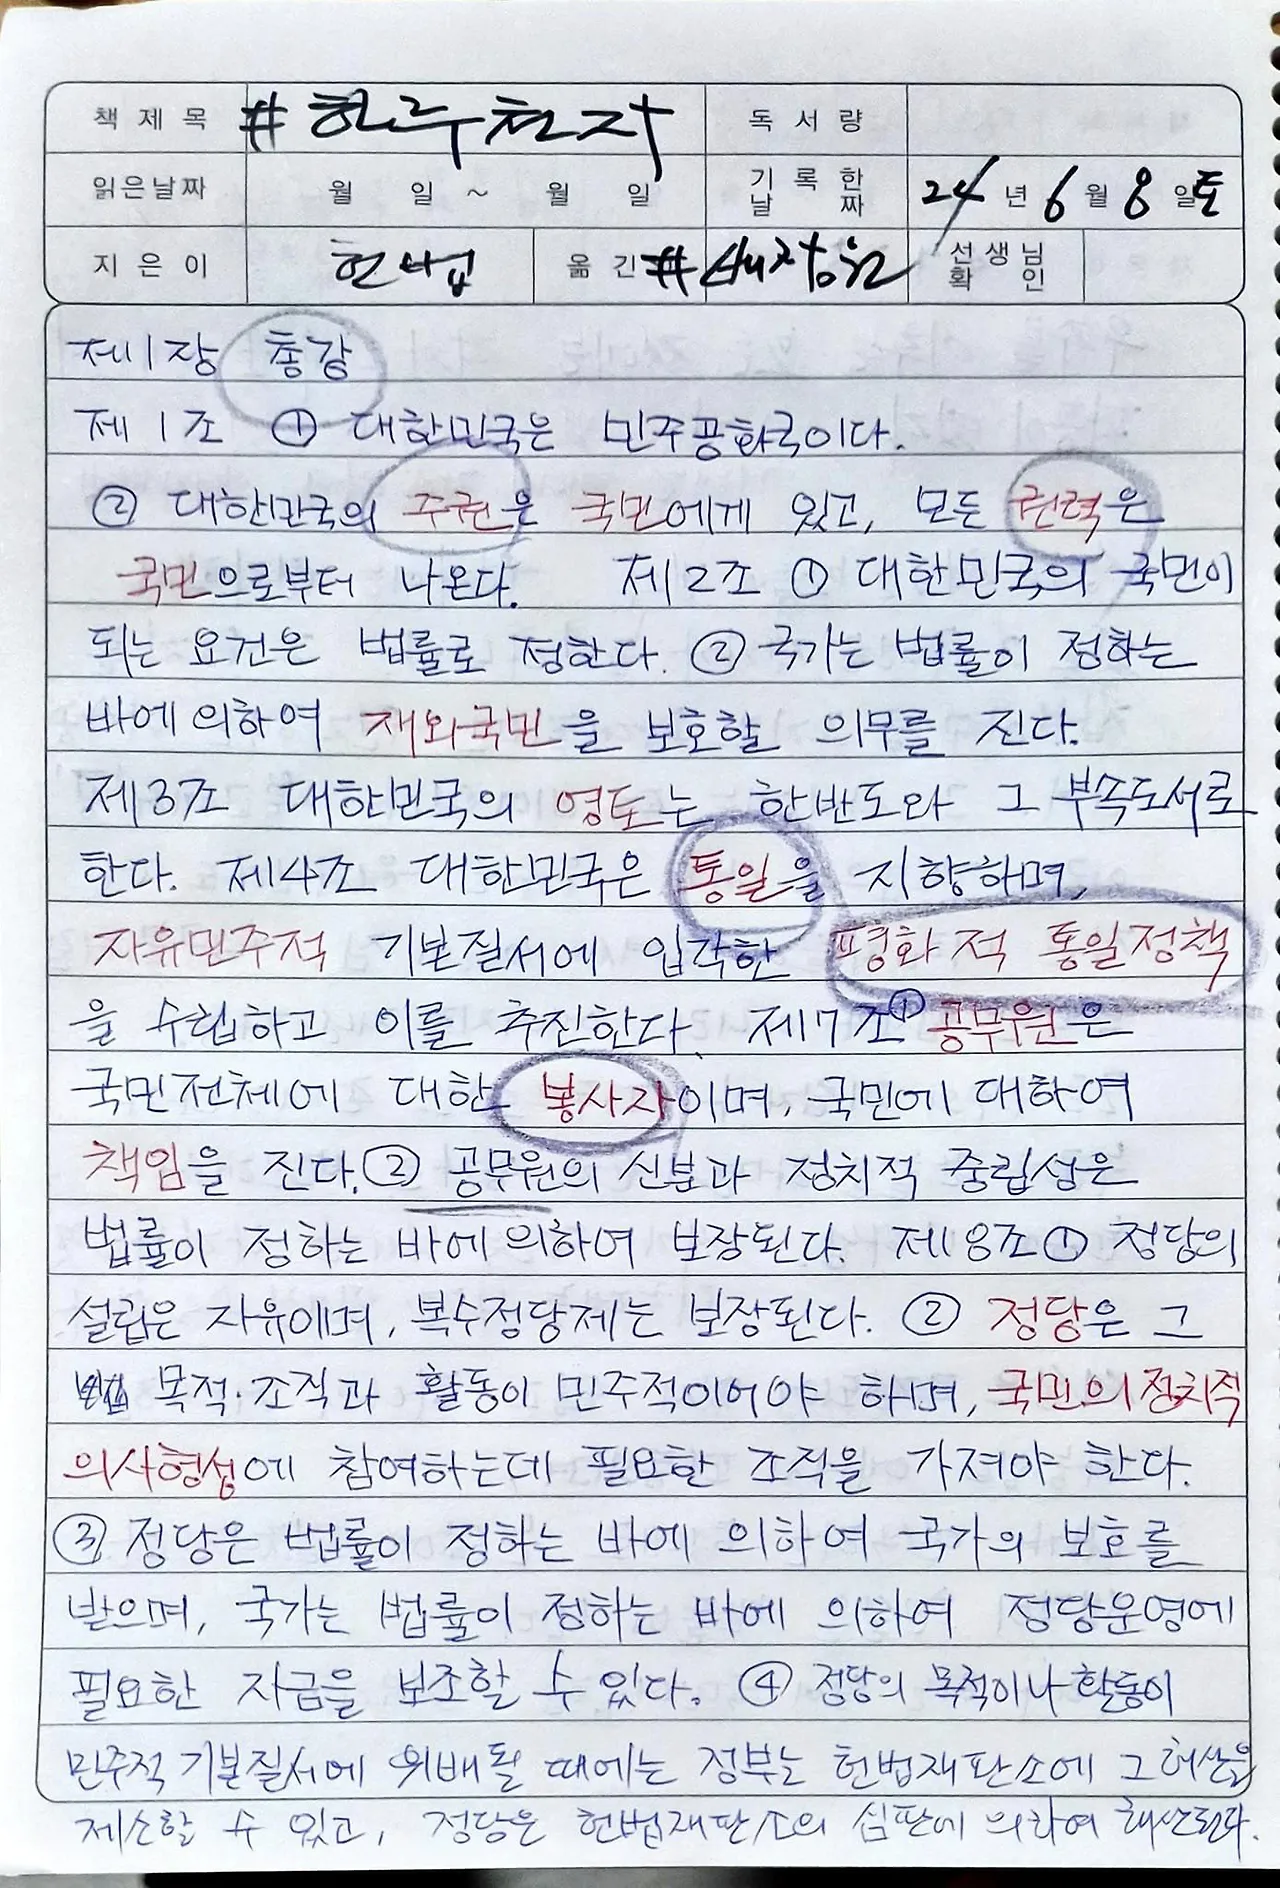 책 제목 #하루천자 독서량
읽은날짜 월 일 ~ 월 일 기록한날짜 24년 6월 8일토
지은이 헌법 옮긴 # 선생님확인
제1장 총강
제1조 ① 대한민국은 민주공화국이다.
② 대한민국의 주권은 국민에게 있고, 모든 권력은
국민으로부터 나온다. 제2조 ① 대한민국의 국민이
되는 요건은 법률로 정한다. ② 국가는 법률이 정하는
바에 의하여 재외국민을 보호할 의무를 진다.
제3조 대한민국의 영토는 한반도와 그 부속도서로
한다. 제4조 대한민국은 통일을 지향하며,
자유민주적 기본질서에 입각한 평화적 통일정책
을 수립하고 이를 추진한다. 제7조 ① 공무원은
국민전체에 대한 봉사자이며, 국민에 대하여
책임을 진다. ② 공무원의 신분과 정치적 중립성은
법률이 정하는 바에 의하여 보장된다. 제8조 ① 정당의
설립은 자유이며, 복수정당제는 보장된다. ② 정당은 그
목적·조직과 활동이 민주적이어야 하며, 국민의 정치적
의사형성에 참여하는데 필요한 조직을 가져야 한다.
③ 정당은 법률이 정하는 바에 의하여 국가의 보호를
받으며, 국가는 법률이 정하는 바에 의하여 정당운영에
필요한 자금을 보조할 수 있다. ④ 정당의 목적이나 활동이
민주적 기본질서에 위배될 때에는 정부는 헌법재판소에 그 해산을
제소할 수 있고, 정당은 헌법재판소의 심판에 의하여 해산된다.